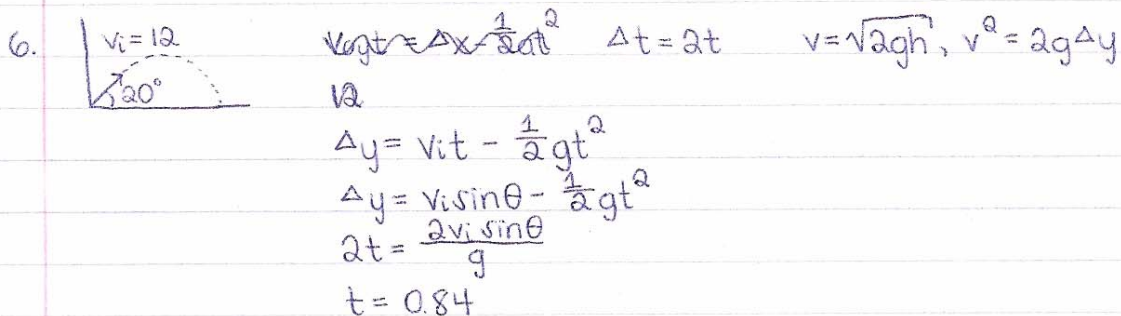 6. vi = 12 20° Δt = 2t v = √2gh, v² = 2gΔy
12
Δy = vit - 1/2 gt²
Δy = visinθ - 1/2 gt²
2t = 2vi sinθ / g
t = 0.84